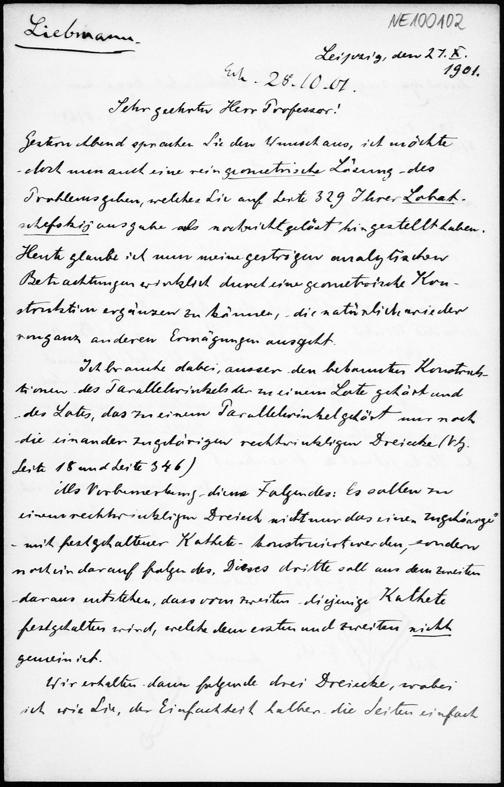 NE100102
Liebmann.
Leipzig, den 27. X.
1901.
Erh. 28.10.01
Sehr geehrter Herr Professor!
Gestern Abend sprachen Sie den Wunsch aus, ich möchte
doch nun auch eine rein geometrische Lösung des
Problems geben, welches Sie auf Seite 329 Ihrer Lobat-
schefskij ausgabe als noch nicht gelöst hingestellt haben.
Heute glaube ich nun meine gestrigen analytischen
Betrachtungen wirklich durch eine geometrische Kon-
struktion ergänzen zu können, die natürlich wieder
von ganz anderen Erwägungen ausgeht.
Ich brauche dabei, ausser den bekannten Konstruk-
tionen des Parallelwinkels der zu einem Lote gehört und
des Lotes, das zu einem Parallelwinkel gehört nur noch
die einander zugehörigen rechtwinkligen Dreiecke (Vg.
Seite 18 und Seite 346)
Als Vorbemerkung diene Folgendes: Es sollen zu
einem rechtwinkligen Dreieck nicht nur das eine "zugehörige"
- mit festgehaltener Kathete - konstruiert werden, sondern
noch ein darauf folgendes. Dieses dritte soll aus dem zweiten
daraus entstehen, dass vom zweiten diejenige Kathete
festgehalten wird, welche dem ersten und zweiten nicht
gemein ist.
Wir erhalten dann folgende drei Dreiecke, wobei
ich wie Sie, der Einfachheit halber die Seiten einfach